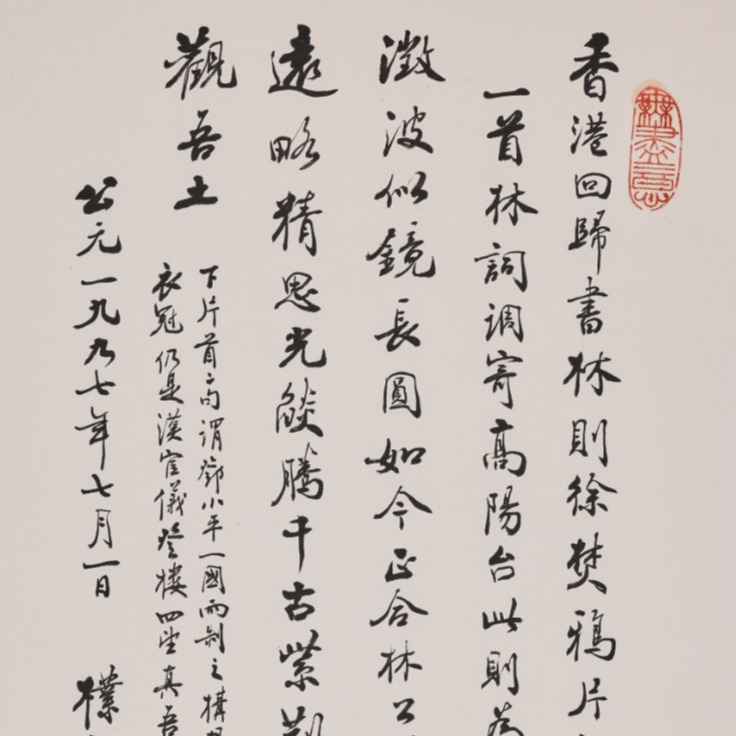 無盡意
香港回歸書林則徐焚鴉片
一首林詞調寄高陽台此則為
澂波似鏡長圓如今正合林公
遠略精思光燄騰千古縈
觀吾土
下片首句謂鄧小平一國兩制之構
衣冠仍是漢官儀登樓四望真吾
公元一九九七年七月一日 樸